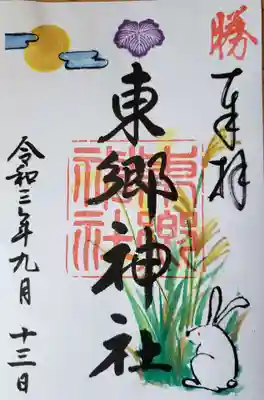 勝
奉拝
東郷神社
東郷神社
令和三年九月 十三日